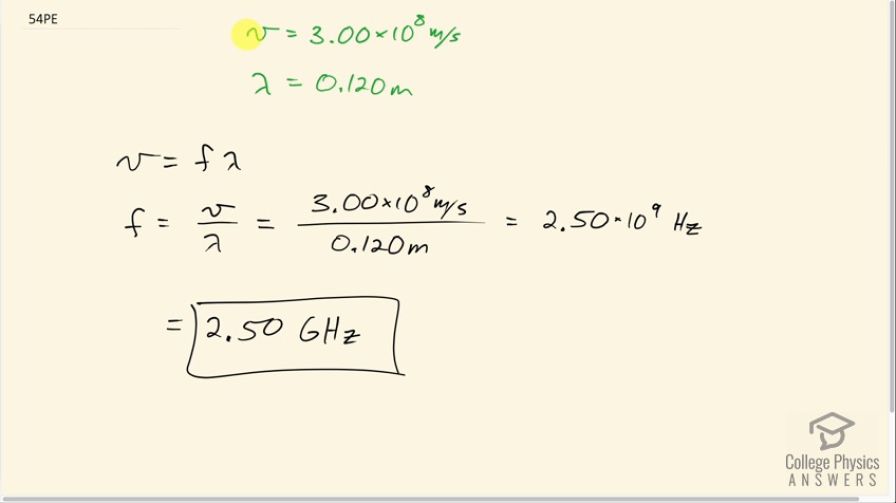 54PE
v = 3.00×10⁸ m/s
λ = 0.120m
v = f λ
f = v/λ = 3.00×10⁸ m/s / 0.120m = 2.50·10⁹ Hz
= 2.50 GHz
College Physics
ANSWERS